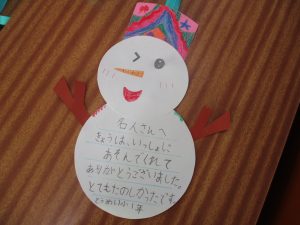 名人さんへ
きょうは、いっしょに
あそんでくれて
ありがとうございました。
とてもたのしかったです。